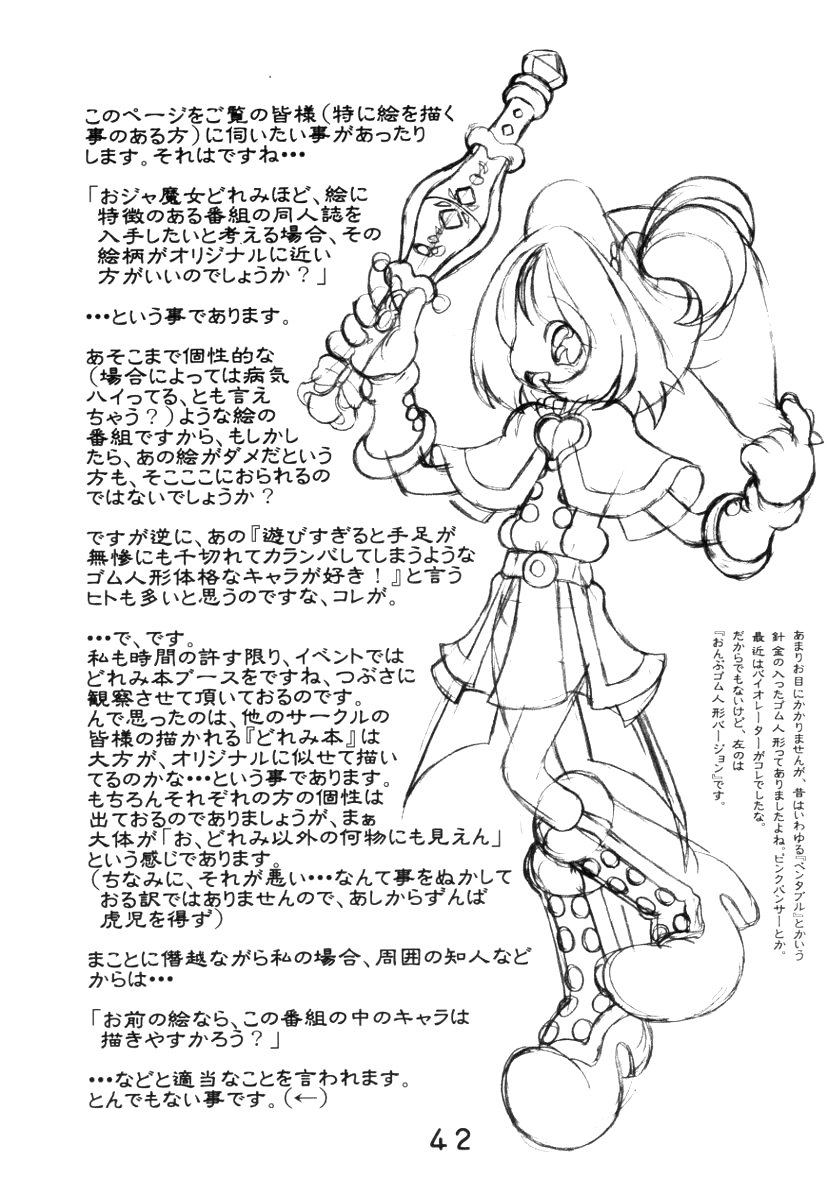 このページをご覧の皆様(特に絵を描く
事のある方)に伺いたい事があったり
します。それはですね•••
「おジャ魔女どれみほど、絵に
特徴のある番組の同人誌を
入手したいと考える場合、その
絵柄がオリジナルに近い
方がいいのでしょうか?」
•••という事であります。
あそこまで個性的な
(場合によっては病気
ハイってる、とも言え
ちゃう?)ような絵の
番組ですから、もしかし
たら、あの絵がダメだという
方も、そこここにおられるの
ではないでしょうか?
ですが逆に、あの『遊びすぎると手足が
無惨にも千切れてカランバしてしまうような
ゴム人形体格なキャラが好き!』と言う
ヒトも多いと思うのですな、コレが。
•••で、です。
私も時間の許す限り、イベントでは
どれみ本ブースをですね、つぶさに
観察させて頂いておるのです。
んで思ったのは、他のサークルの
皆様の描かれる『どれみ本』は
大方が、オリジナルに似せて描い
てるのかな•••という事であります。
もちろんそれぞれの方の個性は
出ておるのでありましょうが、まぁ
大体が「お、どれみ以外の何物にも見えん」
という感じであります。
(ちなみに、それが悪い•••なんて事をぬかして
おる訳ではありませんので、あしからずんば
虎児を得ず)
まことに僭越ながら私の場合、周囲の知人など
からは•••
「お前の絵なら、この番組の中のキャラは
描きやすかろう?」
•••などと適当なことを言われます。
とんでもない事です。(←)
あまりお目にかかりませんが、昔はいわゆる『ベンダブル』とかいう
針金の入ったゴム人形ってありましたよね。ピンクパンサーとか。
最近はバイオレーターがコレでしたな。
だからでもないけど、左のは
『おんぷゴム人形バージョン』です。
42